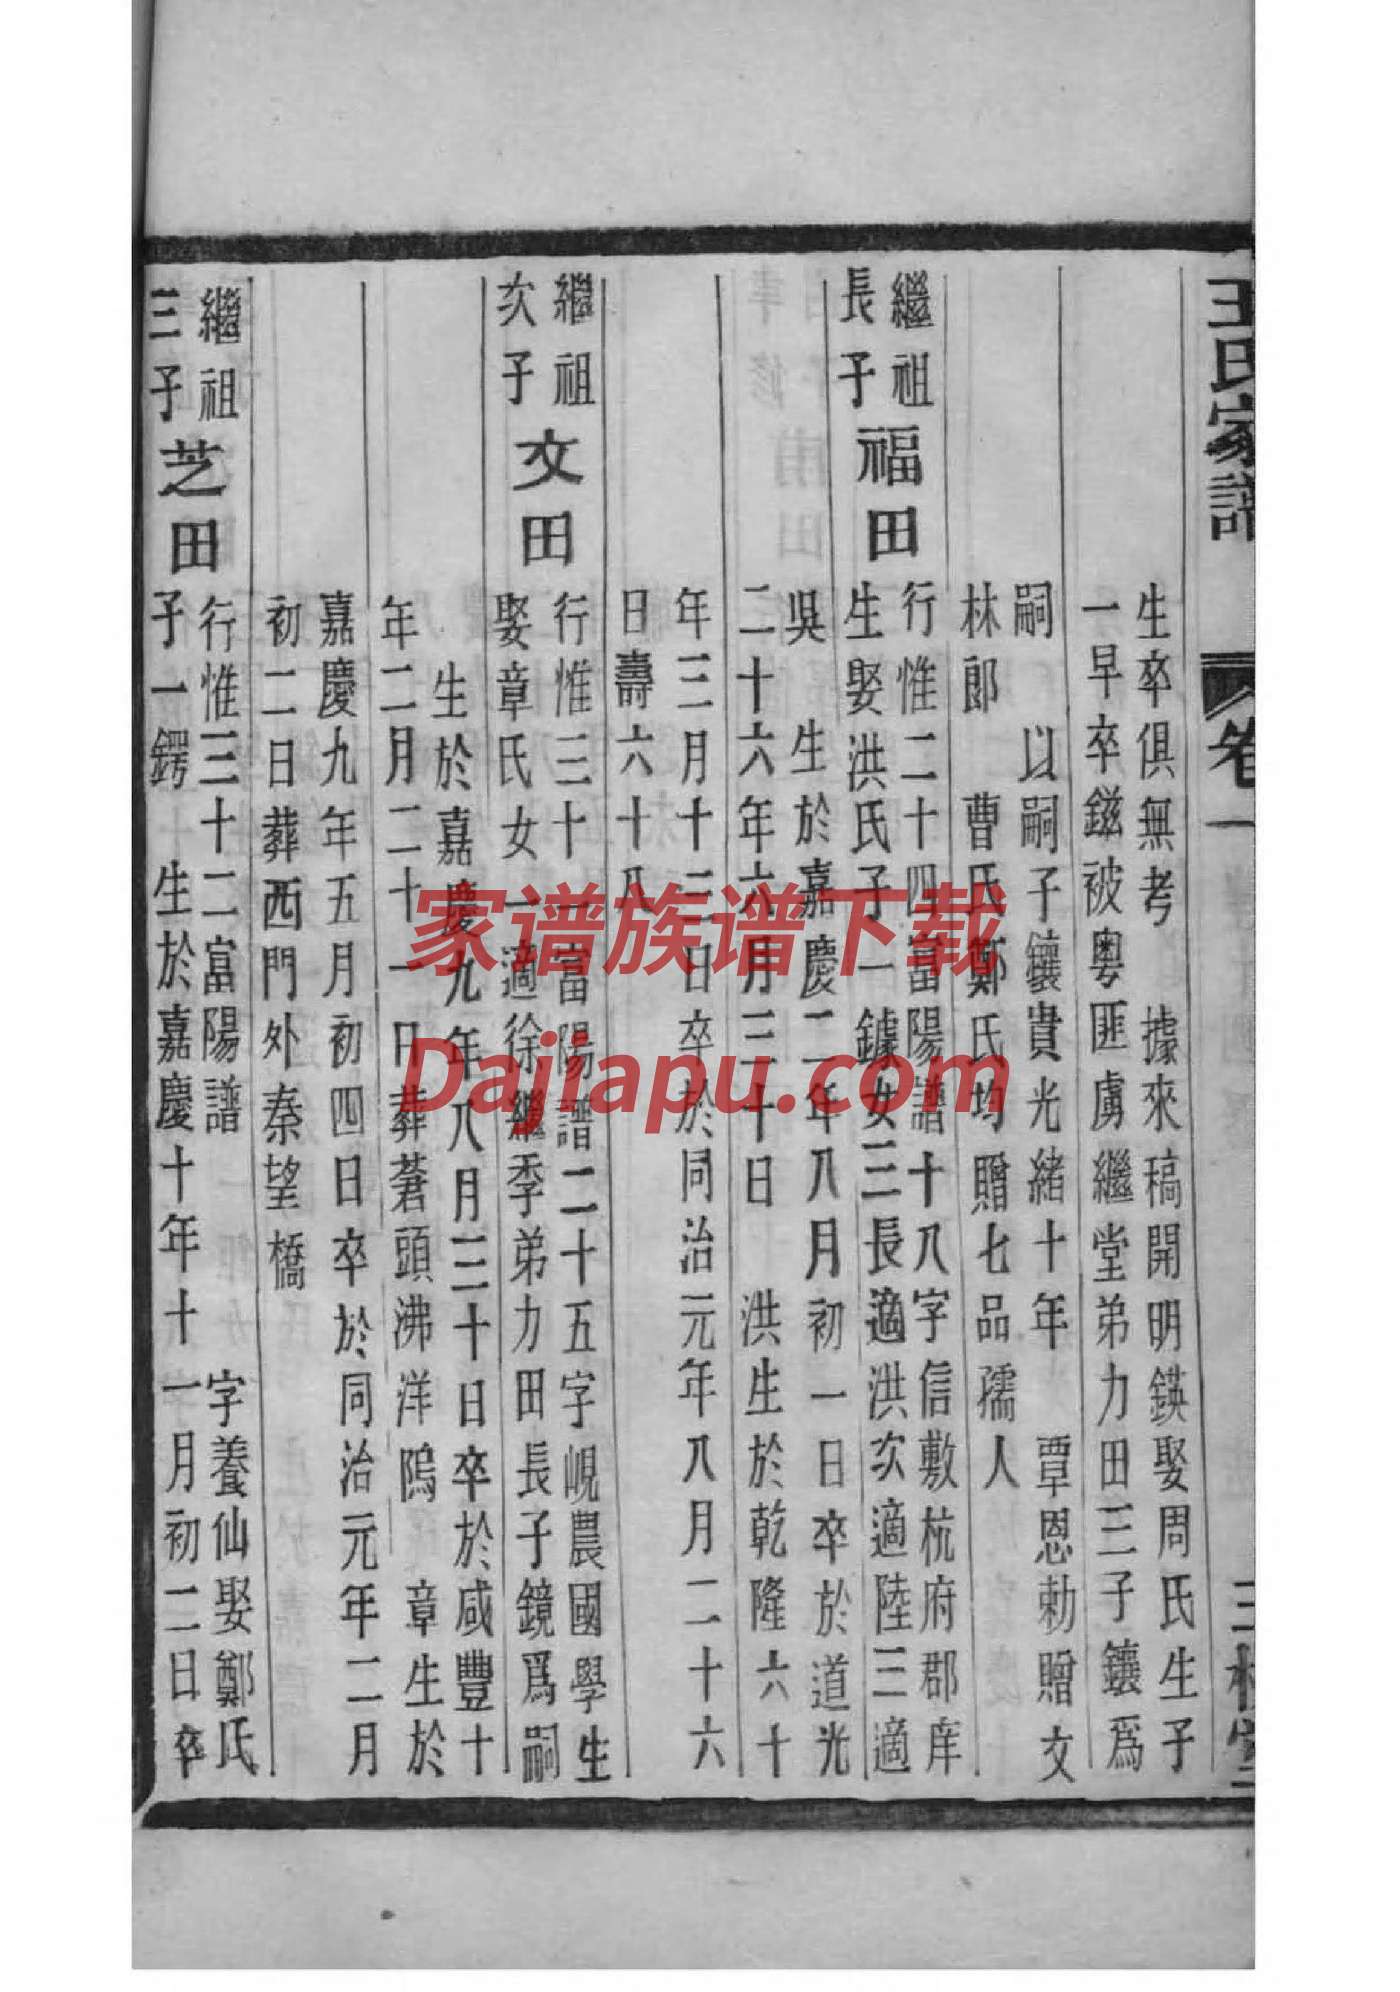 王氏家譜
卷一
三槐堂
生卒俱無考 據來稿開明鍈娶周氏生子
一早卒鎡被粵匪虜繼堂弟力田三子鑲爲
嗣 以嗣子鑲貴光緒十年 覃恩勅贈文
林郎 曹氏鄭氏均贈七品孺人
繼祖
長子
福田
行惟二十四富陽譜十八字信敷杭府郡庠
生娶洪氏子一鑢女三長適洪次適陸三適
吳 生於嘉慶二年八月初一日卒於道光
二十六年六月三十日 洪生於乾隆六十
年三月十三日卒於同治元年八月二十六
日壽六十八
繼祖
次子
文田
行惟三十一富陽譜二十五字峴農國學生
娶章氏女一適徐繼季弟力田長子鏡爲嗣
生於嘉慶九年八月三十日卒於咸豐十
年二月二十一日葬蒼頭沸洋塢 章生於
嘉慶九年五月初四日卒於同治元年二月
初二日葬西門外秦望橋
繼祖
三子
芝田
行惟三十二富陽譜 字養仙娶鄭氏
子一鍔 生於嘉慶十年十一月初二日卒
家谱族谱下载
Dajiapu.com